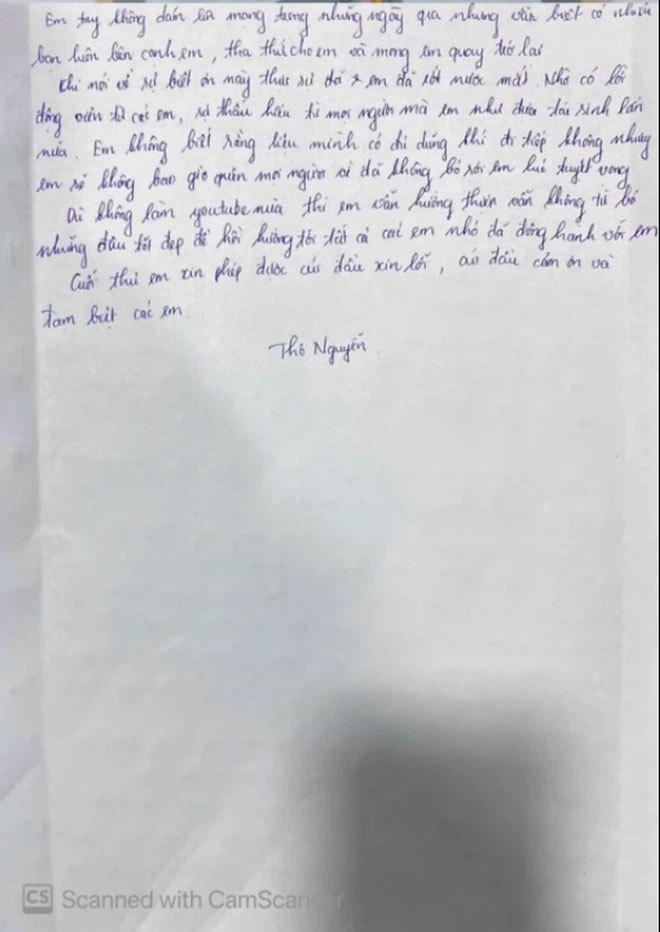 Em tuy không dám lên mạng trong những ngày qua nhưng vẫn biết có nhiều
bạn luôn bên cạnh em, tha thứ cho em và mong em quay trở lại
Khi nói về sự biết ơn này thực sự đã em đã rơi nước mắt. Nhờ có lời
động viên từ các em, sự thấu hiểu từ mọi người mà em như được tái sinh lần
nữa. Em không biết rằng liệu mình có đủ dũng khí đi tiếp không nhưng
em sẽ không bao giờ quên mọi người vì đã không bỏ rơi em lúc tuyệt vọng
Dù không làm youtube nữa thì em vẫn hướng thiện vẫn không từ bỏ
những điều tốt đẹp để hướng tới tất cả các em nhỏ đã đồng hành với em
Cuối thư em xin phép được cúi đầu xin lỗi, cúi đầu cảm ơn và
tạm biệt các em.
Thơ Nguyễn.
CS Scanned with CamScanner